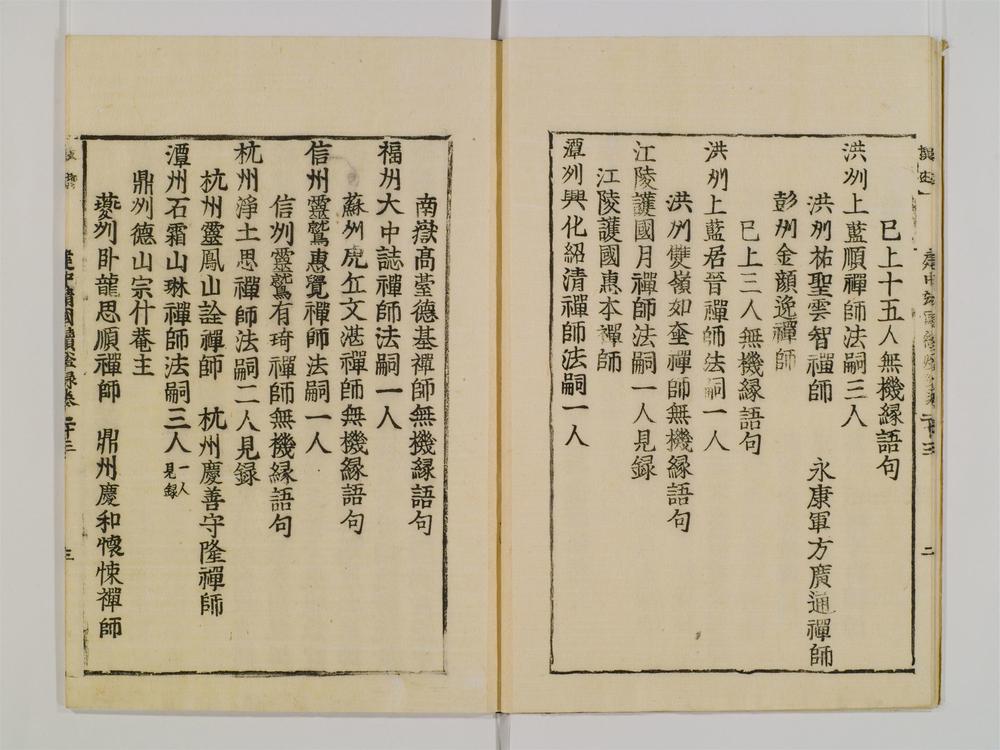 已上十五人無機縁語句
洪州上藍順禪師法嗣三人
洪州祐聖雲智禪師　永康軍方廣通禪師
彭州金顔逸禪師
已上三人無機縁語句
洪州上藍居晉禪師法嗣一人
洪州雙嶺如奎禪師無機縁語句
江陵護國月禪師法嗣一人見録
江陵護國惠本禪師
潭州興化紹清禪師法嗣一人
二
南嶽髙臺德基禪師無機縁語句
福州大中誌禪師法嗣一人
蘇州虎丘文湛禪師無機縁語句
信州靈鷲惠覺禪師法嗣一人
信州靈鷲有琦禪師無機縁語句
杭州淨土思禪師法嗣二人見録
杭州靈鳳山詮禪師　杭州慶善守隆禪師
潭州石霜山琳禪師法嗣三人一人見録
鼎州德山宗什菴主
夔州卧龍思順禪師　鼎州慶和懷悚禪師
建中靖國續燈録卷二十三
三